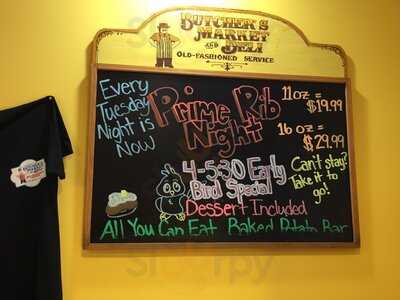 BUTCHER'S
MARKET
AND DELI
OLD-FASHIONED SERVICE
Every
Tuesday
Night is
Now
Prime Rib
Night
11 oz =
$19.99
16 oz =
$29.99
4-5:30 Early
Bird Special
Dessert Included
Can't stay?
Take it to
go!
All You Can Eat Baked Potato Bar